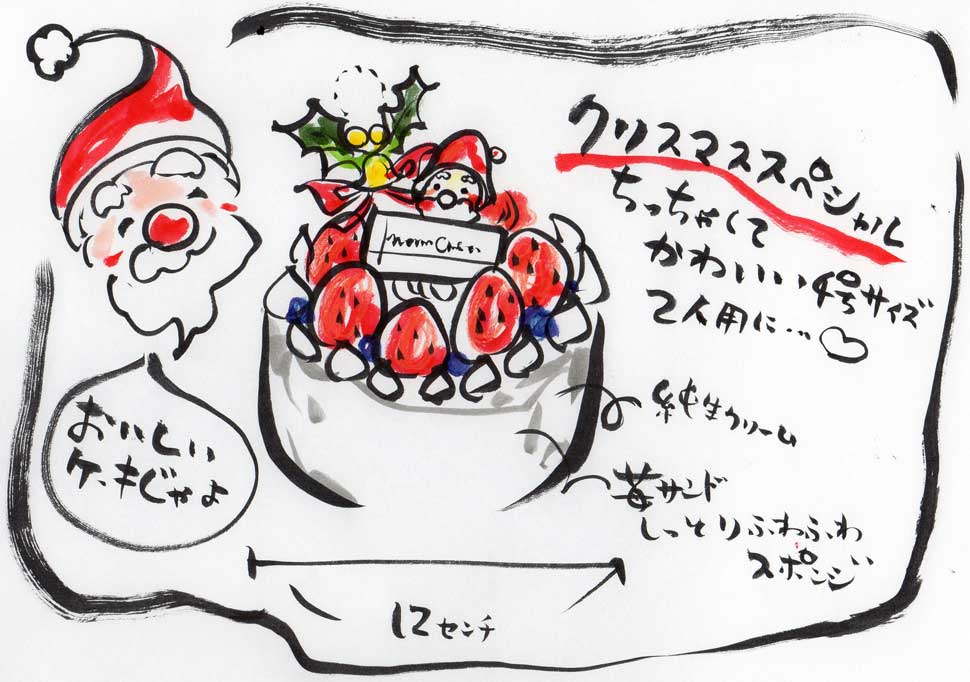 クリスマススペシャル
ちっちゃくて
かわいい4号サイズ
2人用に…
純生クリーム
苺サンド
しっとりふわふわ
スポンジ
おいしい
ケーキじゃよ
12センチ